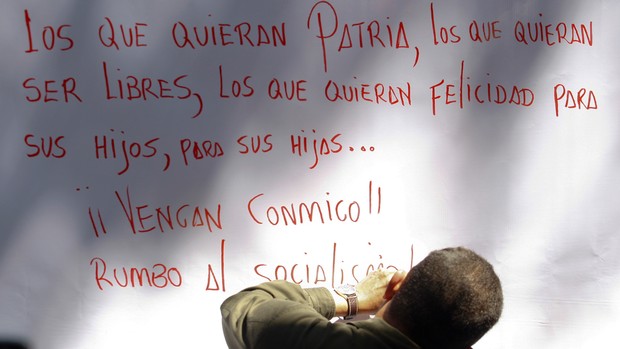 LOS QUE QUIERAN PATRIA, LOS QUE QUIERAN
SER LIBRES, LOS QUE QUIERAN FELICIDAD PARA
SUS HIJOS, PARA SUS HIJAS...
¡¡VENGAN CONMIGO!!
RUMBO AL SOCIALISMO!